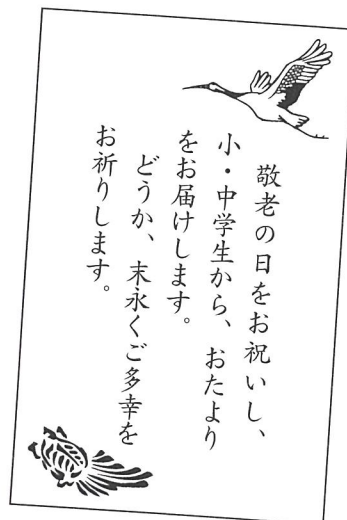 敬老の日をお祝いし、
小・中学生から、おたより
をお届けします。
どうか、末永くご多幸を
お祈りします。